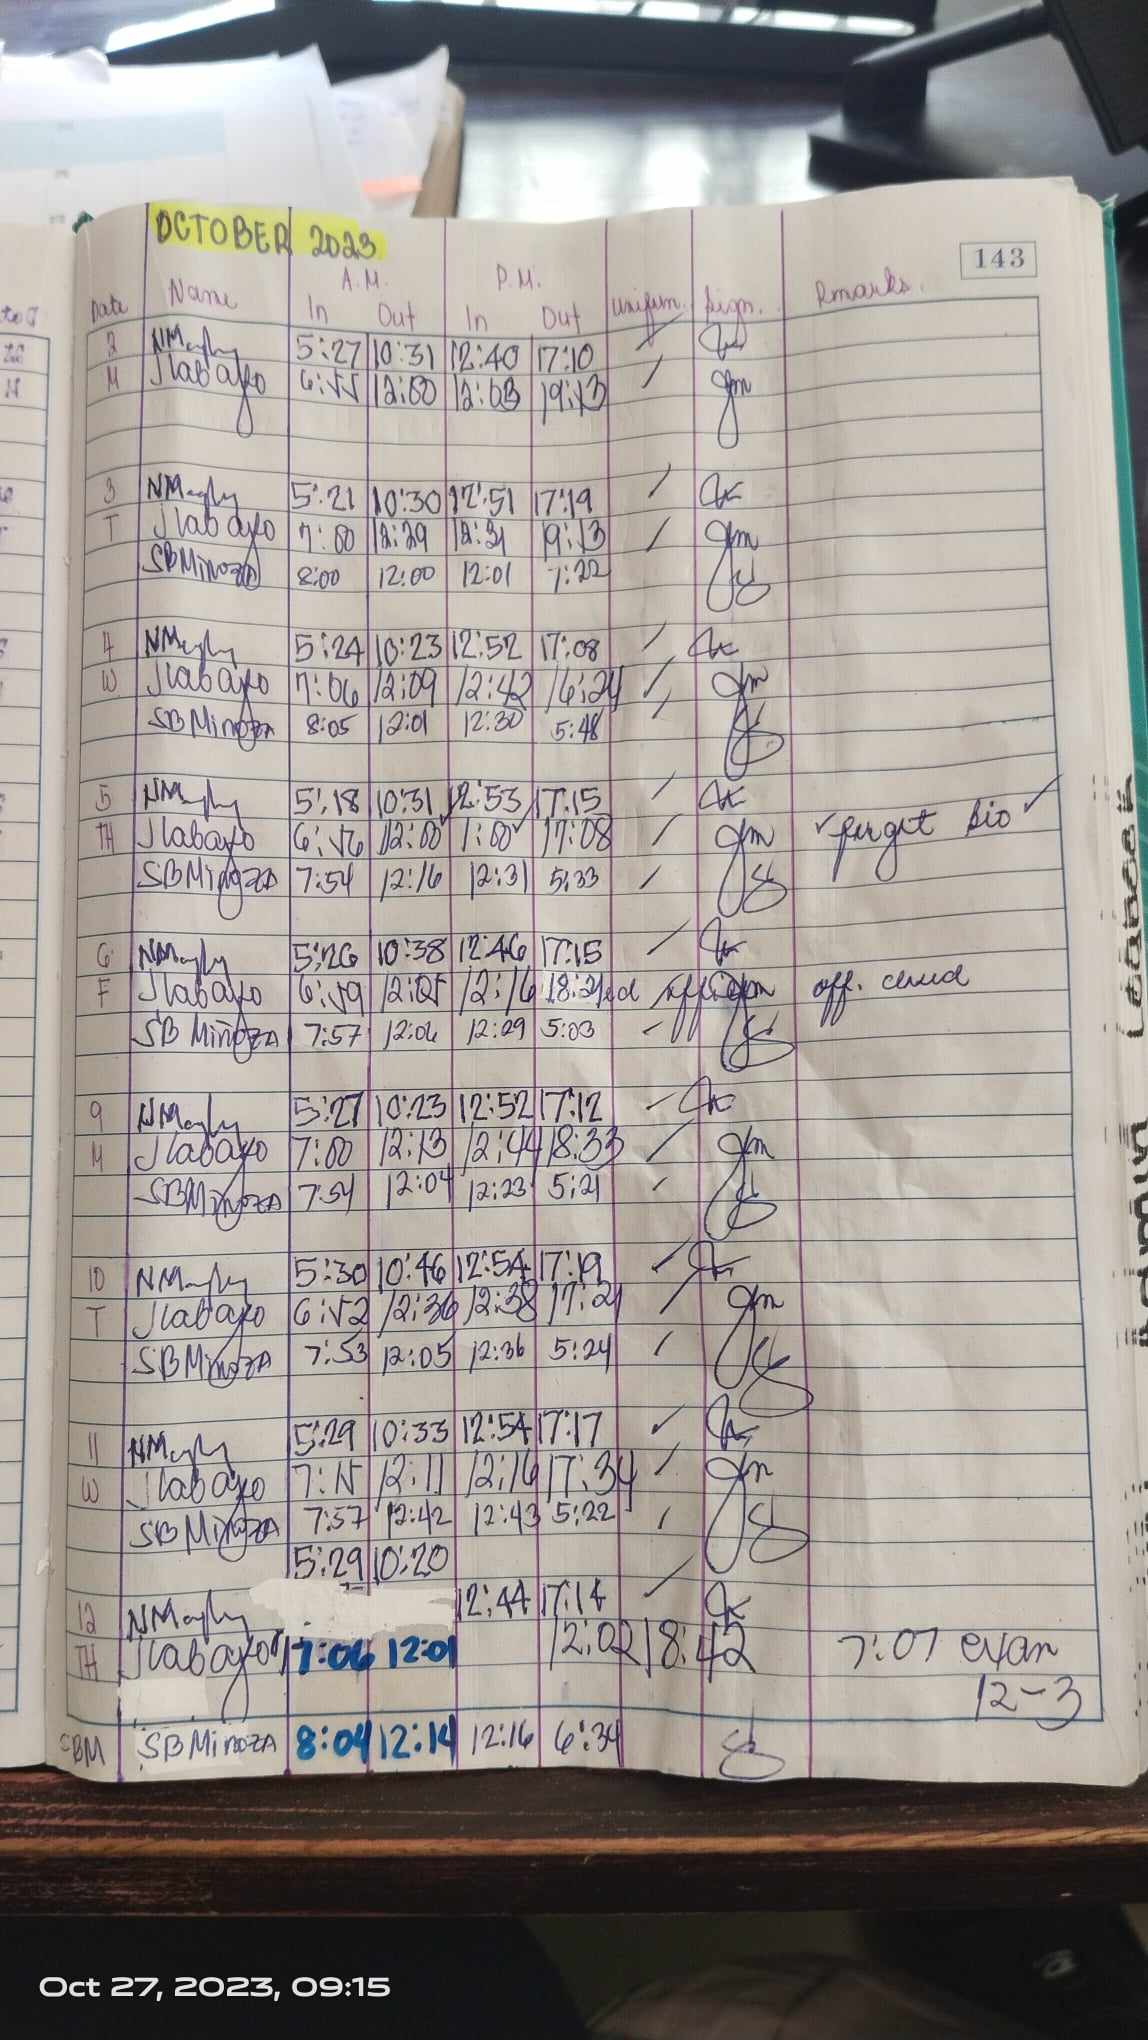 OCTOBER 2023
143
A.M. P.M.
Date Name In Out In Out Uniform. Sign. Rmarks.
2 5:27 10:31 12:40 17:10
M Jlabayo 6:55 12:00 12:03 19:13 gm
3 5:21 10:30 12:51 17:19
T Jlabayo 7:00 12:29 12:31 19:13 gm
SBMinoza 8:00 12:00 12:01 7:22
4 5:24 10:23 12:52 17:08
W Jlabayo 7:06 12:09 12:42 16:24 gm
SBMinoza 8:05 12:01 12:30 5:48
5 5:18 10:31 12:53 17:15
TH Jlabayo 6:56 12:00 1:00 17:08 gm forgot bio
SBMinoza 7:54 12:16 12:31 5:33
6 5:26 10:38 12:46 17:15
F Jlabayo 6:59 12:05 12:16 18:21 gm off.
SB Minoza 7:57 12:06 12:29 5:03
9 5:27 10:23 12:52 17:12
M Jlabayo 7:00 12:13 12:44 18:33 gm
SBMinoza 7:54 12:04 12:23 5:21
10 5:30 10:46 12:54 17:19
T Jlabayo 6:52 12:36 12:38 17:21 gm
SBMinoza 7:53 12:05 12:36 5:24
11 5:29 10:33 12:54 17:17
W Jlabayo 7:15 12:11 12:16 17:34 gm
SBMinoza 7:57 12:42 12:43 5:22
5:29 10:20
12 12:44 17:14
TH Jlabayo 7:06 12:01 12:02 18:42 7:07 exam
12-3
SBM SBMinoza 8:04 12:14 12:16 6:34
Oct 27, 2023, 09:15